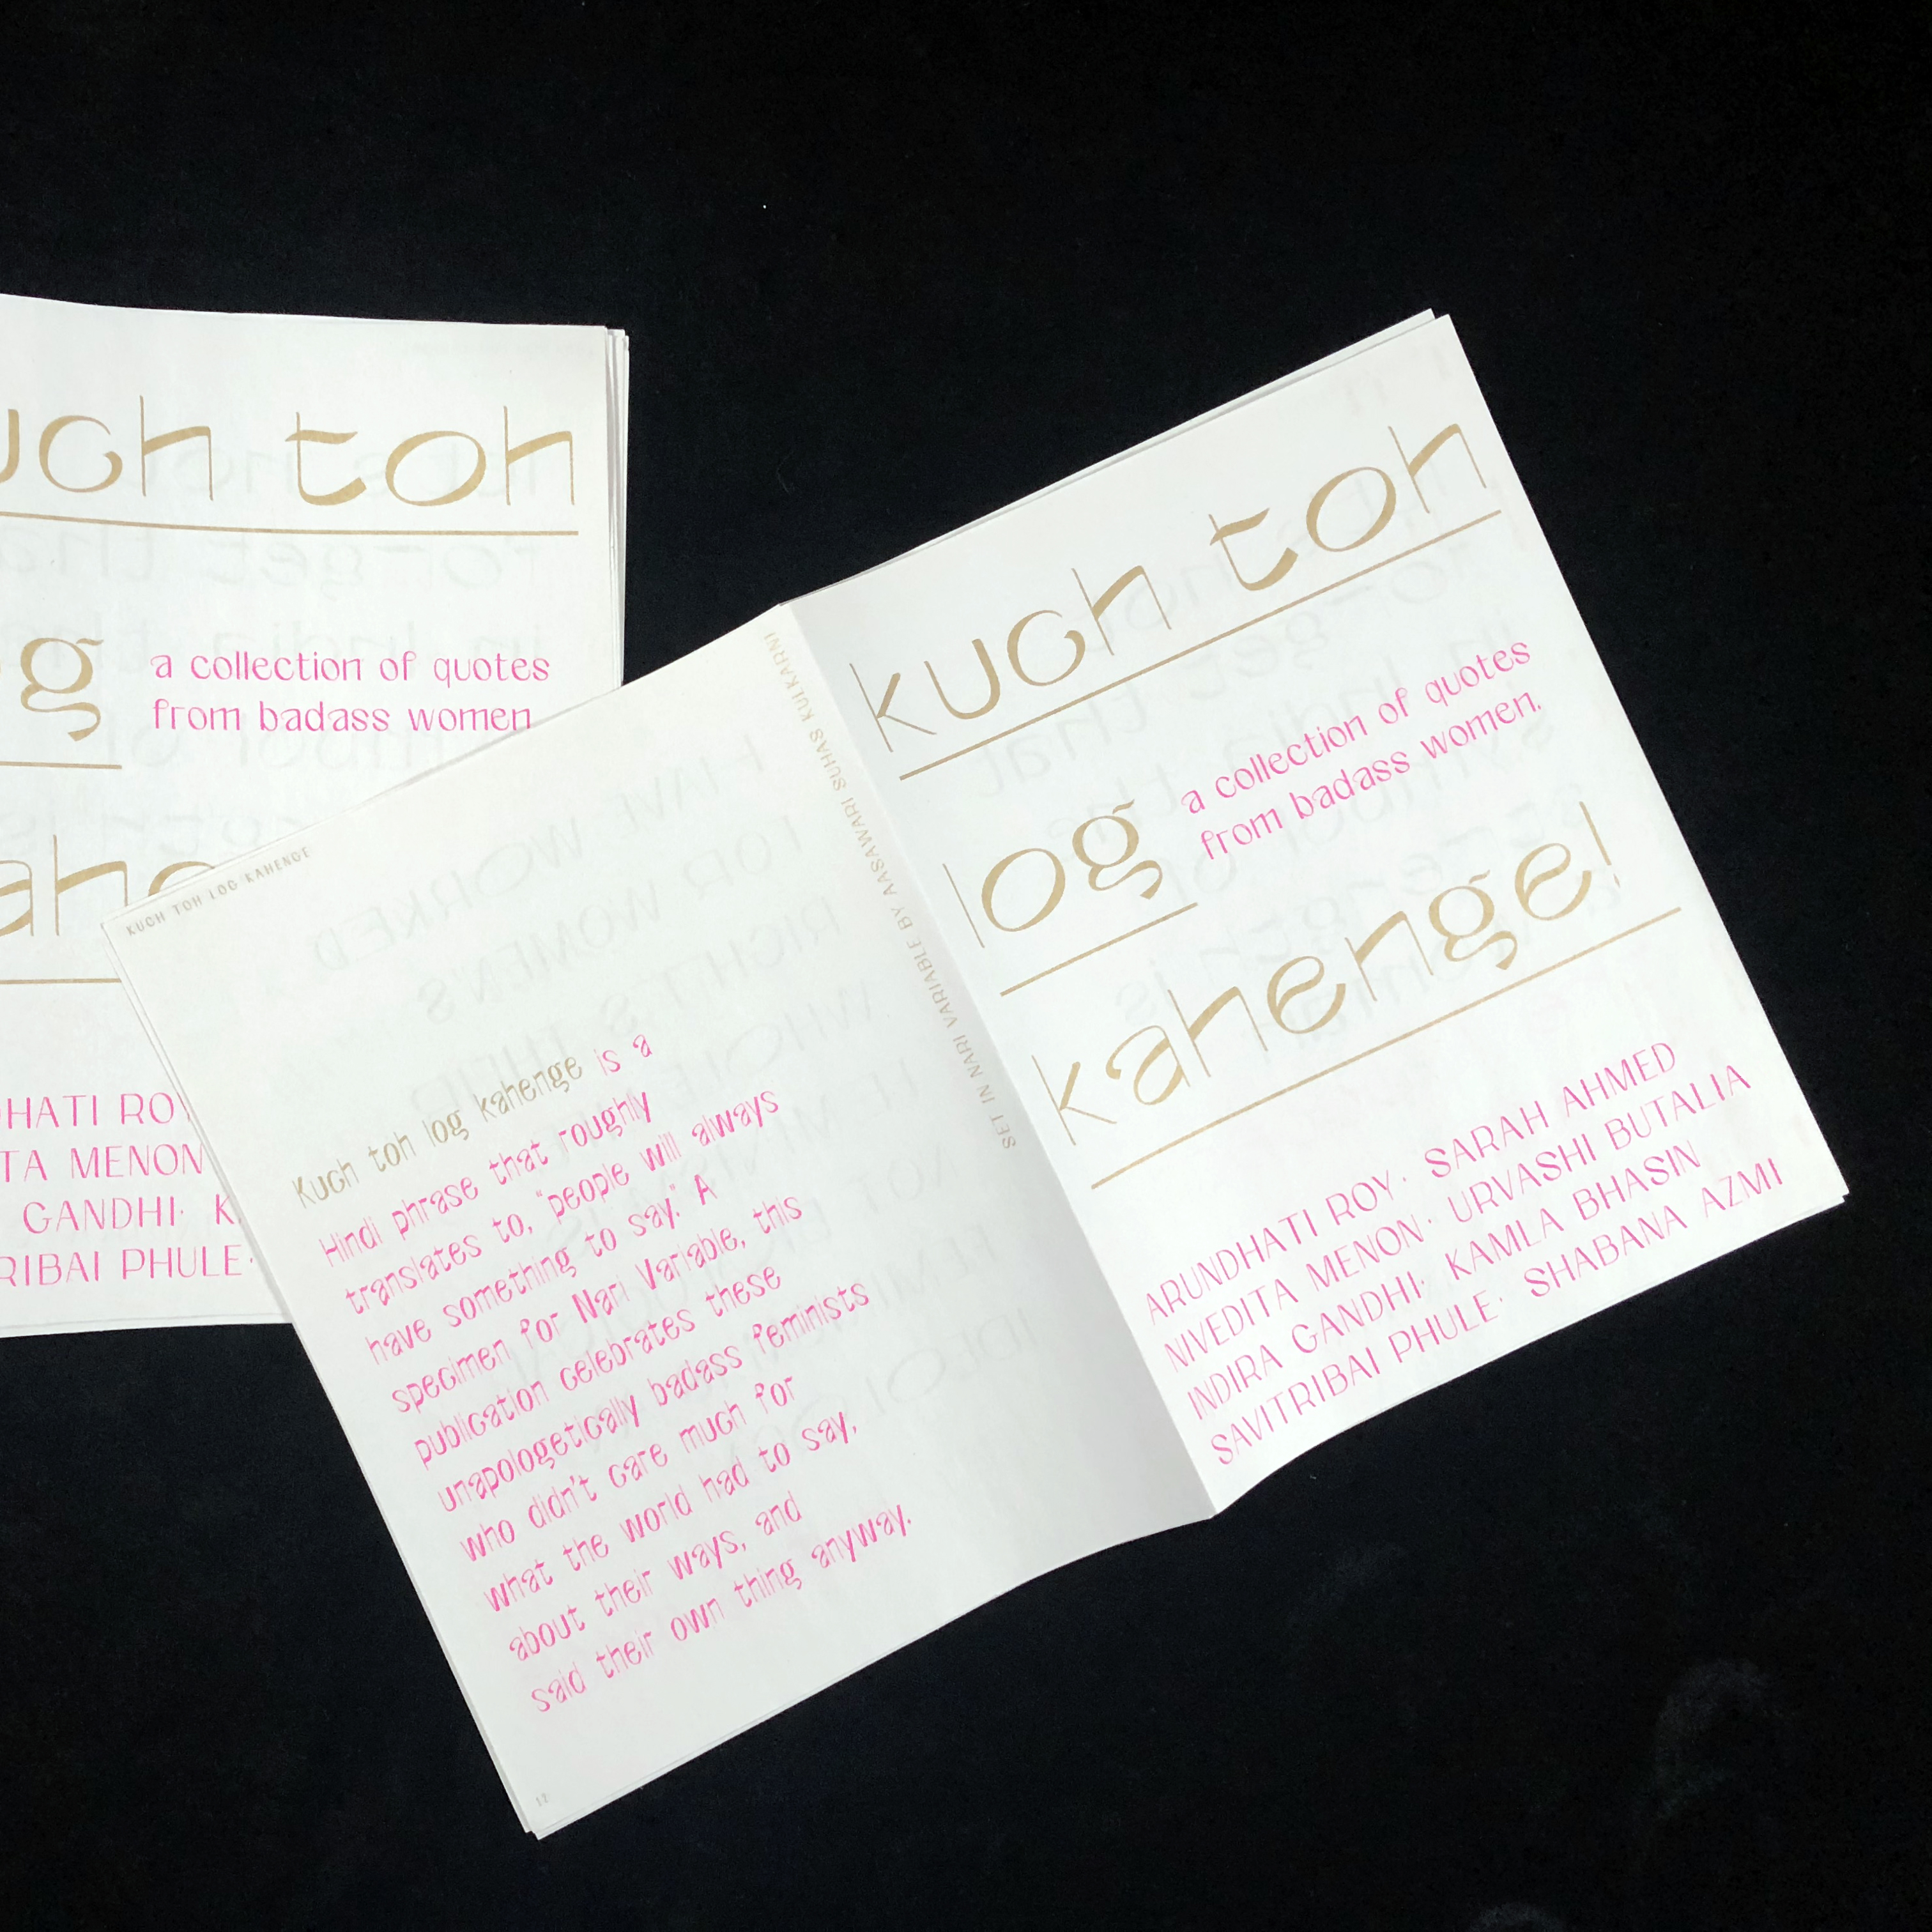 uch toh
og
a collection of quotes
from badass women
ahe
DHATI ROY
TA MENON
GANDHI· K
RIBAI PHULE·
KUCH TOH LOG KAHENGE
Kuch toh log kahenge is a
Hindi phrase that roughly
translates to, "people will always
have something to say." A
specimen for Nari Variable, this
publication celebrates these
unapologetically badass feminists
who didn't care much for
what the world had to say,
about their ways, and
said their own thing anyway.
12
SET IN NARI VARIABLE BY AASAWARI SUHAS KULKARNI
kuch toh
log
a collection of quotes
from badass women.
kahenge!
ARUNDHATI ROY· SARAH AHMED
NIVEDITA MENON· URVASHI BUTALIA
INDIRA GANDHI· KAMLA BHASIN
SAVITRIBAI PHULE· SHABANA AZMI